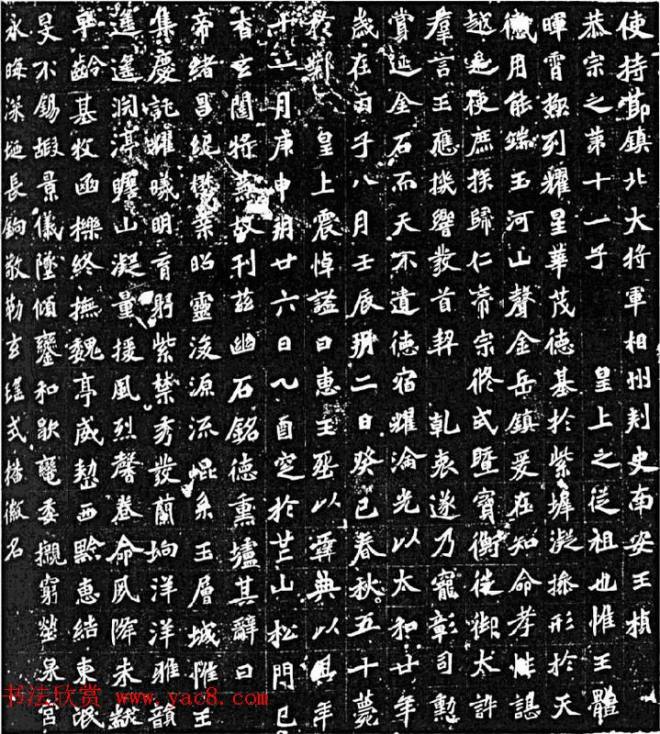 使持節鎮北大將軍相州刺史南安王楨
恭宗之第十一子 皇上之從祖也惟王體
暉霄極列耀星華茂德基於紫墀凝操形於天
儀用能端玉河山聲金岳鎮爰在知命孝性諶
越是使庶族歸仁帝宗攸式暨寶衡徙御大訊
羣言王應機響發首契 乾衷遂乃寵彰司勳
賞延金石而天不遺德宿耀淪光以太和廿年
歲在丙子八月壬辰朔二日癸巳春秋五十薨
於鄴 皇上震悼謚曰惠王葬以彝典以其年
十一月庚申朔廿六日乙酉窆於芒山松門已
杳玄闥將蕪故刊茲幽石銘德熏壚其辭曰
帝緒昌紀懋業昭靈浚源流崐系玉層城惟王
集慶託耀曦明育躬紫禁秀發蘭坰洋洋雅韻
遙遙淵渟瞻山凝量援風烈馨卷命夙降未黻
早齡基牧函櫟終撫魏亭威愸西黔惠結東氓
旻不錫嘏景儀墜傾鑾和歇轡委櫬窮塋泉宮
永晦深埏長鉤敬勒玄瑤式播徽名
书法欣赏 www.yac8.com